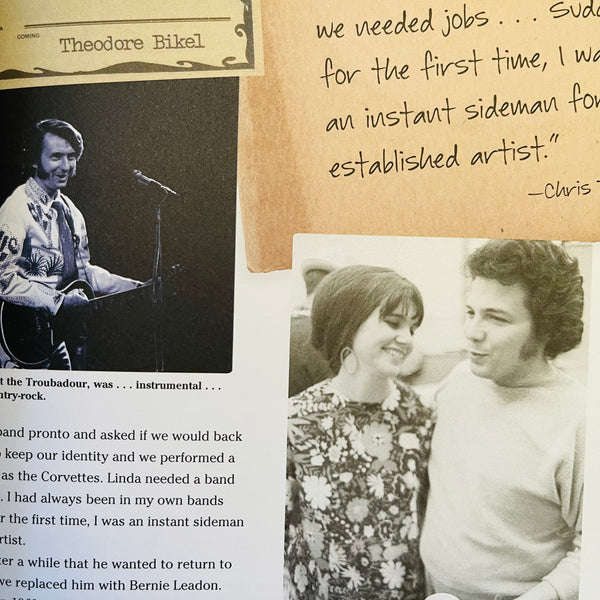 COMING
Theodore Bikel
we needed jobs . . .
for the first time, I
an instant sideman
established artist."
—Chris
t the Troubadour, was . . . instrumental . . .
ntry-rock.
band pronto and asked if we would back
keep our identity and we performed a
as the Corvettes. Linda needed a band
. I had always been in my own bands
r the first time, I was an instant sideman
rtist.
ter a while that he wanted to return to
we replaced him with Bernie Leadon.